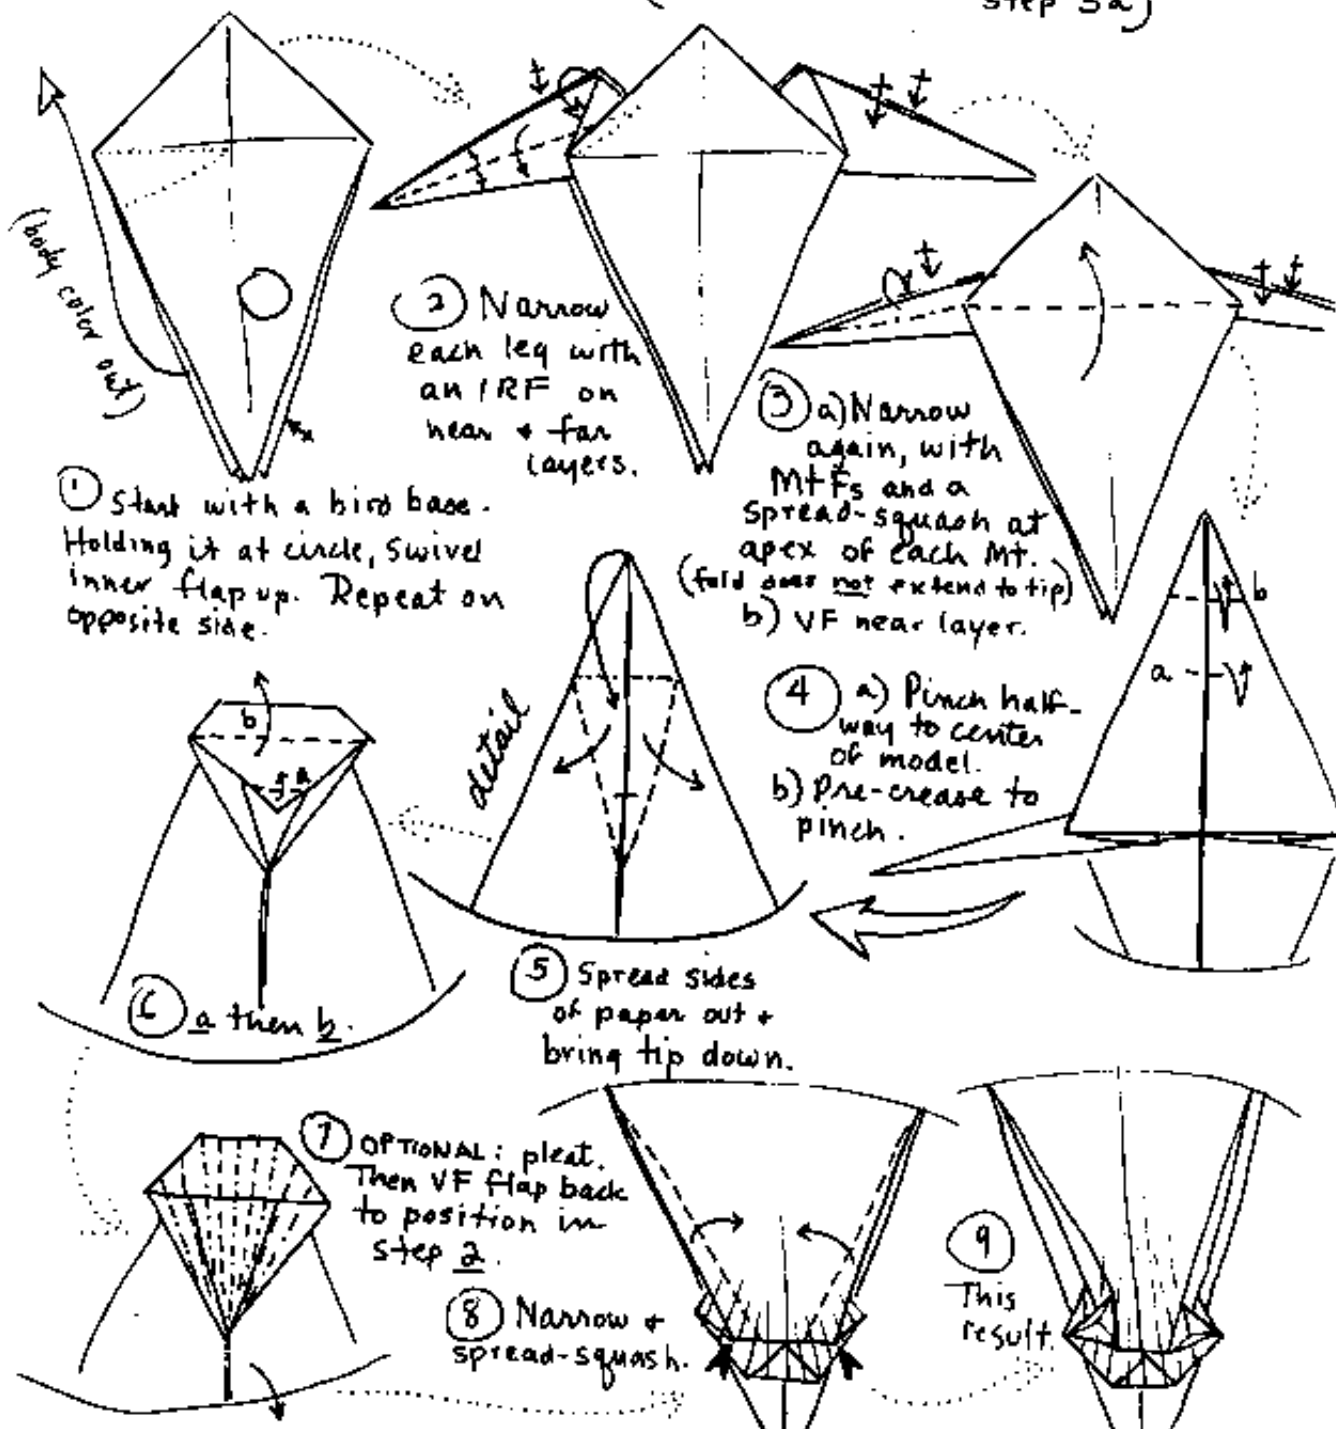 step 3a)
(body color out)
① Start with a bird base.
Holding it at circle, swivel
inner flap up. Repeat on
opposite side.
② Narrow
each leg with
an IRF on
near + far
layers.
③ a) Narrow
again, with
MtFs and a
spread-squash at
apex of each Mt.
(fold does not extend to tip)
b) VF near layer.
b
a
④ a) Pinch half-
way to center
of model.
b) Pre-crease to
pinch.
detail
⑤ Spread sides
of paper out +
bring tip down.
b
a
⑥ a then b.
⑦ OPTIONAL: pleat.
Then VF flap back
to position in
step 2.
⑧ Narrow +
spread-squash.
⑨
This
result